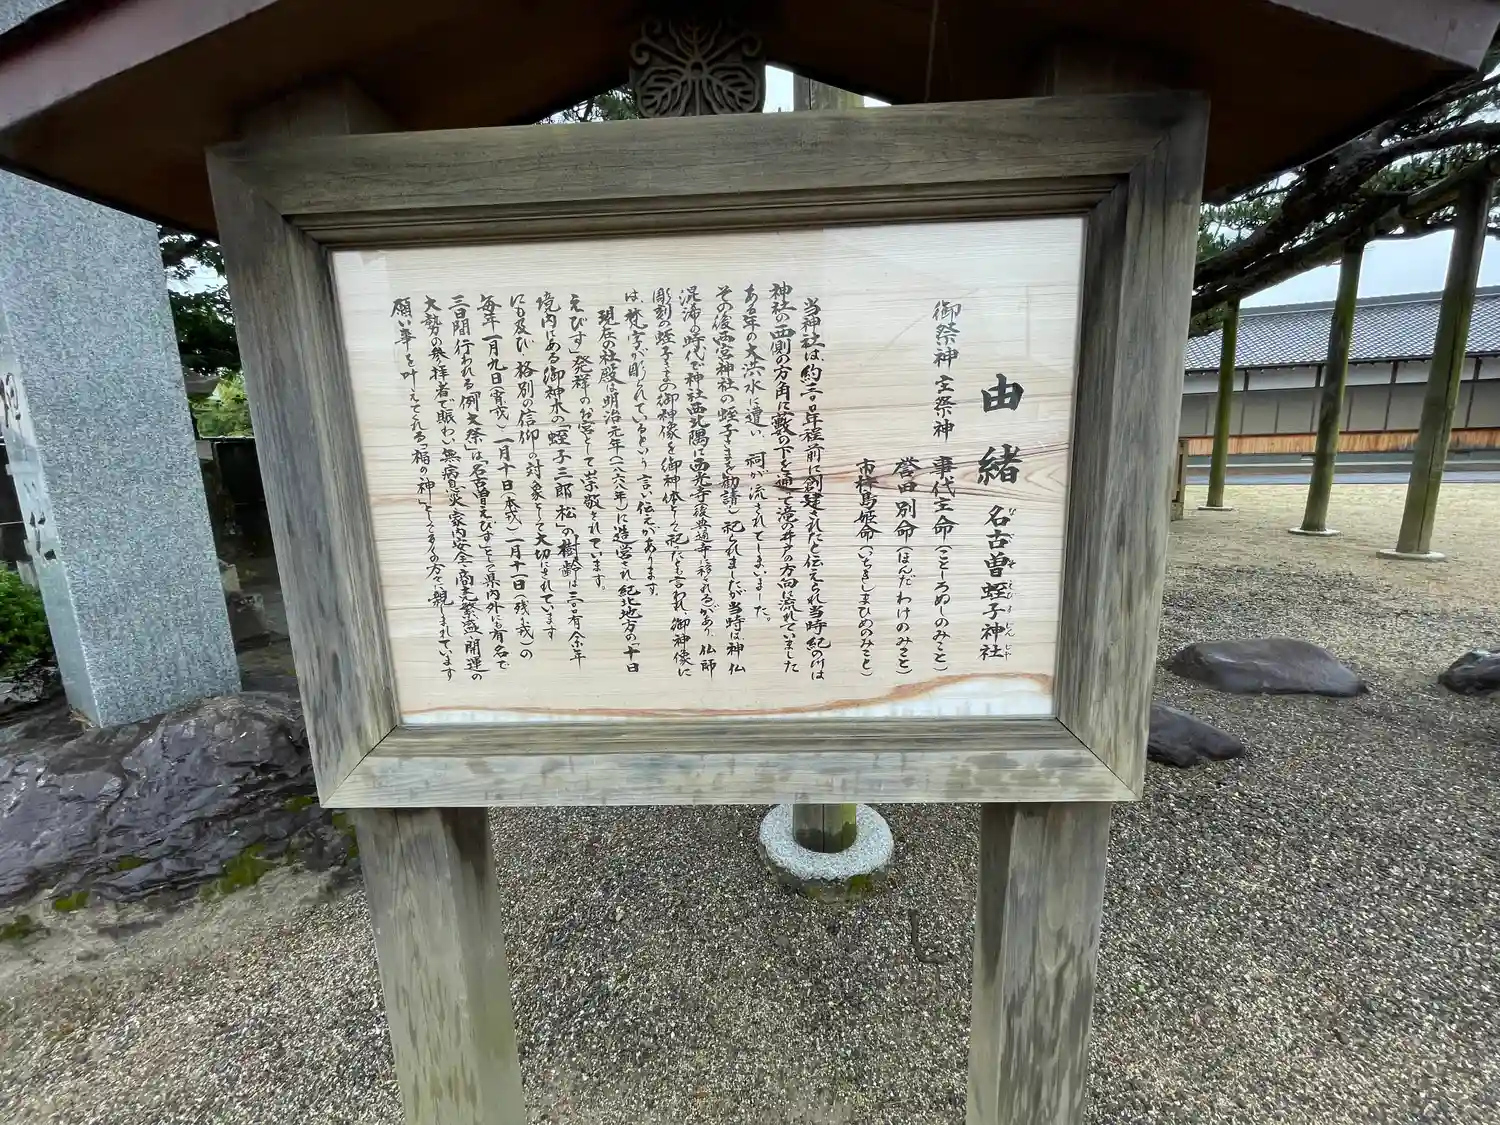 由緒 名古曽蛭子神社
なこそえびすじんじゃ
御祭神 主祭神 事代主命(ことしろぬしのみこと)
誉田別命(ほんだわけのみこと)
市杵島姫命(いちきしまひめのみこと)
当神社は約三〇〇年程前に創建されたと伝えられ当時紀の川は
神社の西側の方角に藪の下を通って滝の井戸の方向に流れていました
ある年の大洪水に遭い、祠が流されてしまいました。
その後西宮神社の蛭子さまを勧請し祀られましたが当時は神仏
混淆の時代で神社西北隅に西光寺(後興道寺に移される)があり、仏師
彫刻の蛭子さまの御神像を御神体として祀ったとも言われ、御神像に
は、梵字が彫られているという言い伝えがあります。
現在の社殿は明治元年(一八六八年)に造営され紀北地方の「十日
えびす」発祥のお宮として崇敬されています。
境内にある御神木の「蛭子三郎松」の樹齢は三〇〇有余年
にも及び、格別の信仰の対象として大切にされています
毎年一月九日(宵戎)一月十日(本戎)一月十一日(残り戎)の
三日間行われる「例大祭」は「名古曽えびす」として県内外にも有名で
大勢の参拝者で賑わい、無病息災・家内安全・商売繁盛・開運の
願い事を叶えてくれる「福の神」として多くの方々に親しまれています